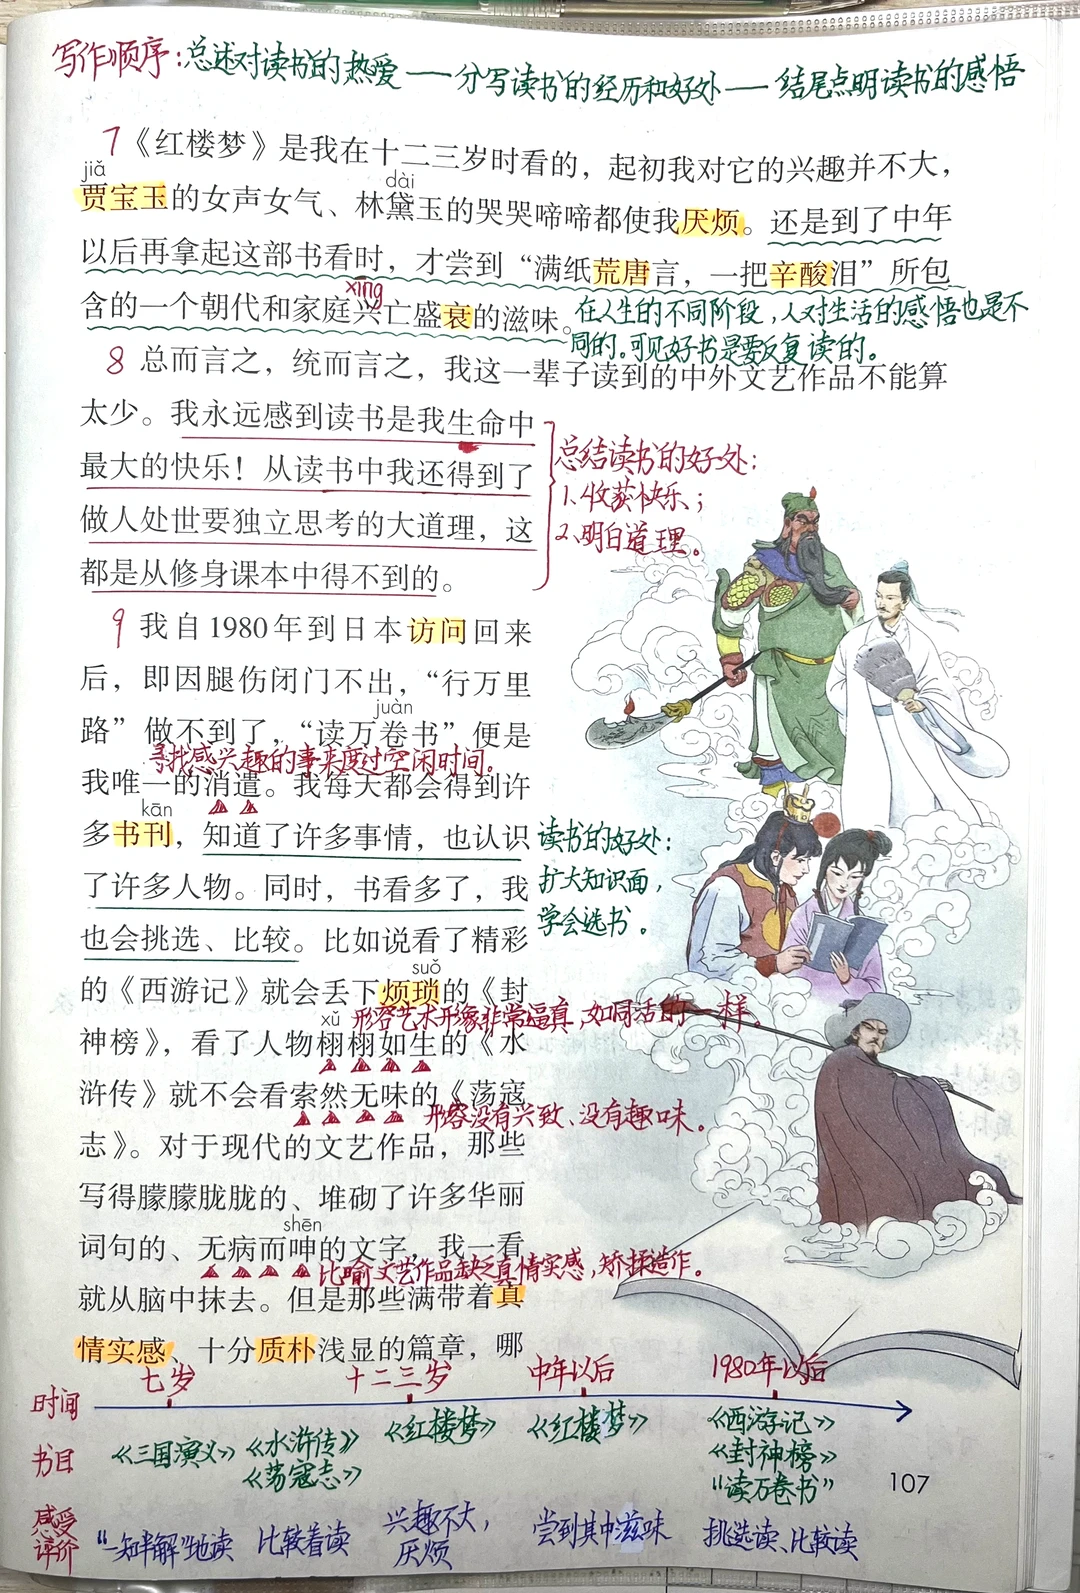 写作顺序：总述对读书的热爱——分写读书的经历和好处——结尾点明读书的感悟
7《红楼梦》是我在十二三岁时看的，起初我对它的兴趣并不大，
jiǎ
dài
贾宝玉的女声女气、林黛玉的哭哭啼啼都使我厌烦。还是到了中年
以后再拿起这部书看时，才尝到“满纸荒唐言，一把辛酸泪”所包
xīng
含的一个朝代和家庭兴亡盛衰的滋味。
在人生的不同阶段，人对生活的感悟也是不
同的。可见好书是要反复读的。
8 总而言之，统而言之，我这一辈子读到的中外文艺作品不能算
太少。我永远感到读书是我生命中
最大的快乐！从读书中我还得到了
做人处世要独立思考的大道理，这
都是从修身课本中得不到的。
总结读书的好处：
1、收获快乐；
2、明白道理。
9 我自1980年到日本访问回来
后，即因腿伤闭门不出，“行万里
juàn
路”做不到了，“读万卷书”便是
寻找感兴趣的事来度过空闲时间。
我唯一的消遣。我每天都会得到许
kān
多书刊，知道了许多事情，也认识
了许多人物。同时，书看多了，我
也会挑选、比较。比如说看了精彩
读书的好处：
扩大知识面，
学会选书。
suǒ
的《西游记》就会丢下烦琐的《封
xǔ
形容艺术形象非常逼真，如同活的一样。
神榜》，看了人物栩栩如生的《水
浒传》就不会看索然无味的《荡寇
形容没有兴致、没有趣味。
志》。对于现代的文艺作品，那些
写得朦朦胧胧的、堆砌了许多华丽
shēn
词句的、无病而呻的文字，我一看
比喻文艺作品缺乏真情实感，矫揉造作。
就从脑中抹去。但是那些满带着真
情实感、十分质朴浅显的篇章，哪
时间
七岁 十二三岁 中年以后 1980年以后
书目
《三国演义》 《水浒传》 《荡寇志》 《红楼梦》 《红楼梦》 《西游记》 《封神榜》 “读万卷书”
107
感受
评价
“一知半解”地读 比较着读 兴趣不大，厌烦 尝到其中滋味 挑选读、比较读